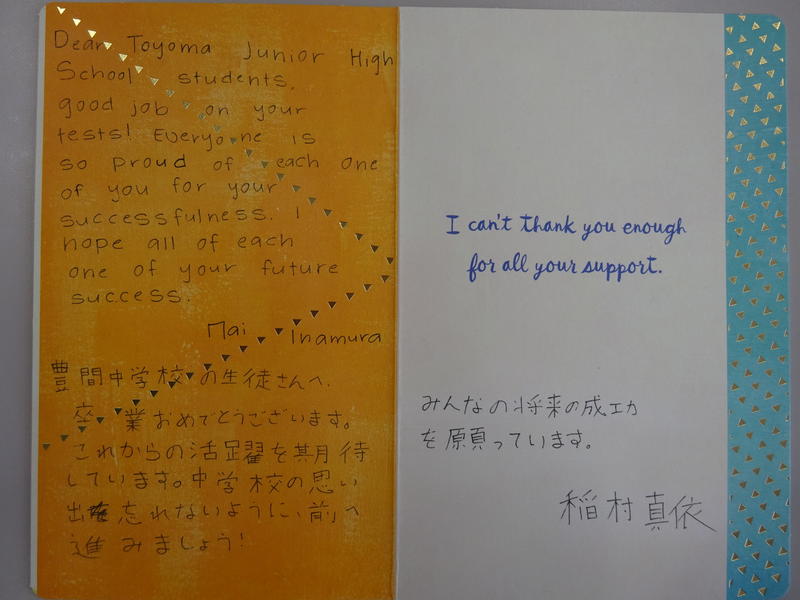 Dear Toyoma Junior High
School students,
good job on your
tests! Everyone is
so proud of each one
of you for your
successfulness. I
hope all of each
one of your future
success.
Mai Inamura
豊間中学校の生徒さんへ、
卒業おめでとうございます。
これからの活躍を期待
しています。中学校の思い
出を忘れないように、前へ
進みましょう!
I can't thank you enough
for all your support.
みんなの将来の成功
を願っています。
稲村真依